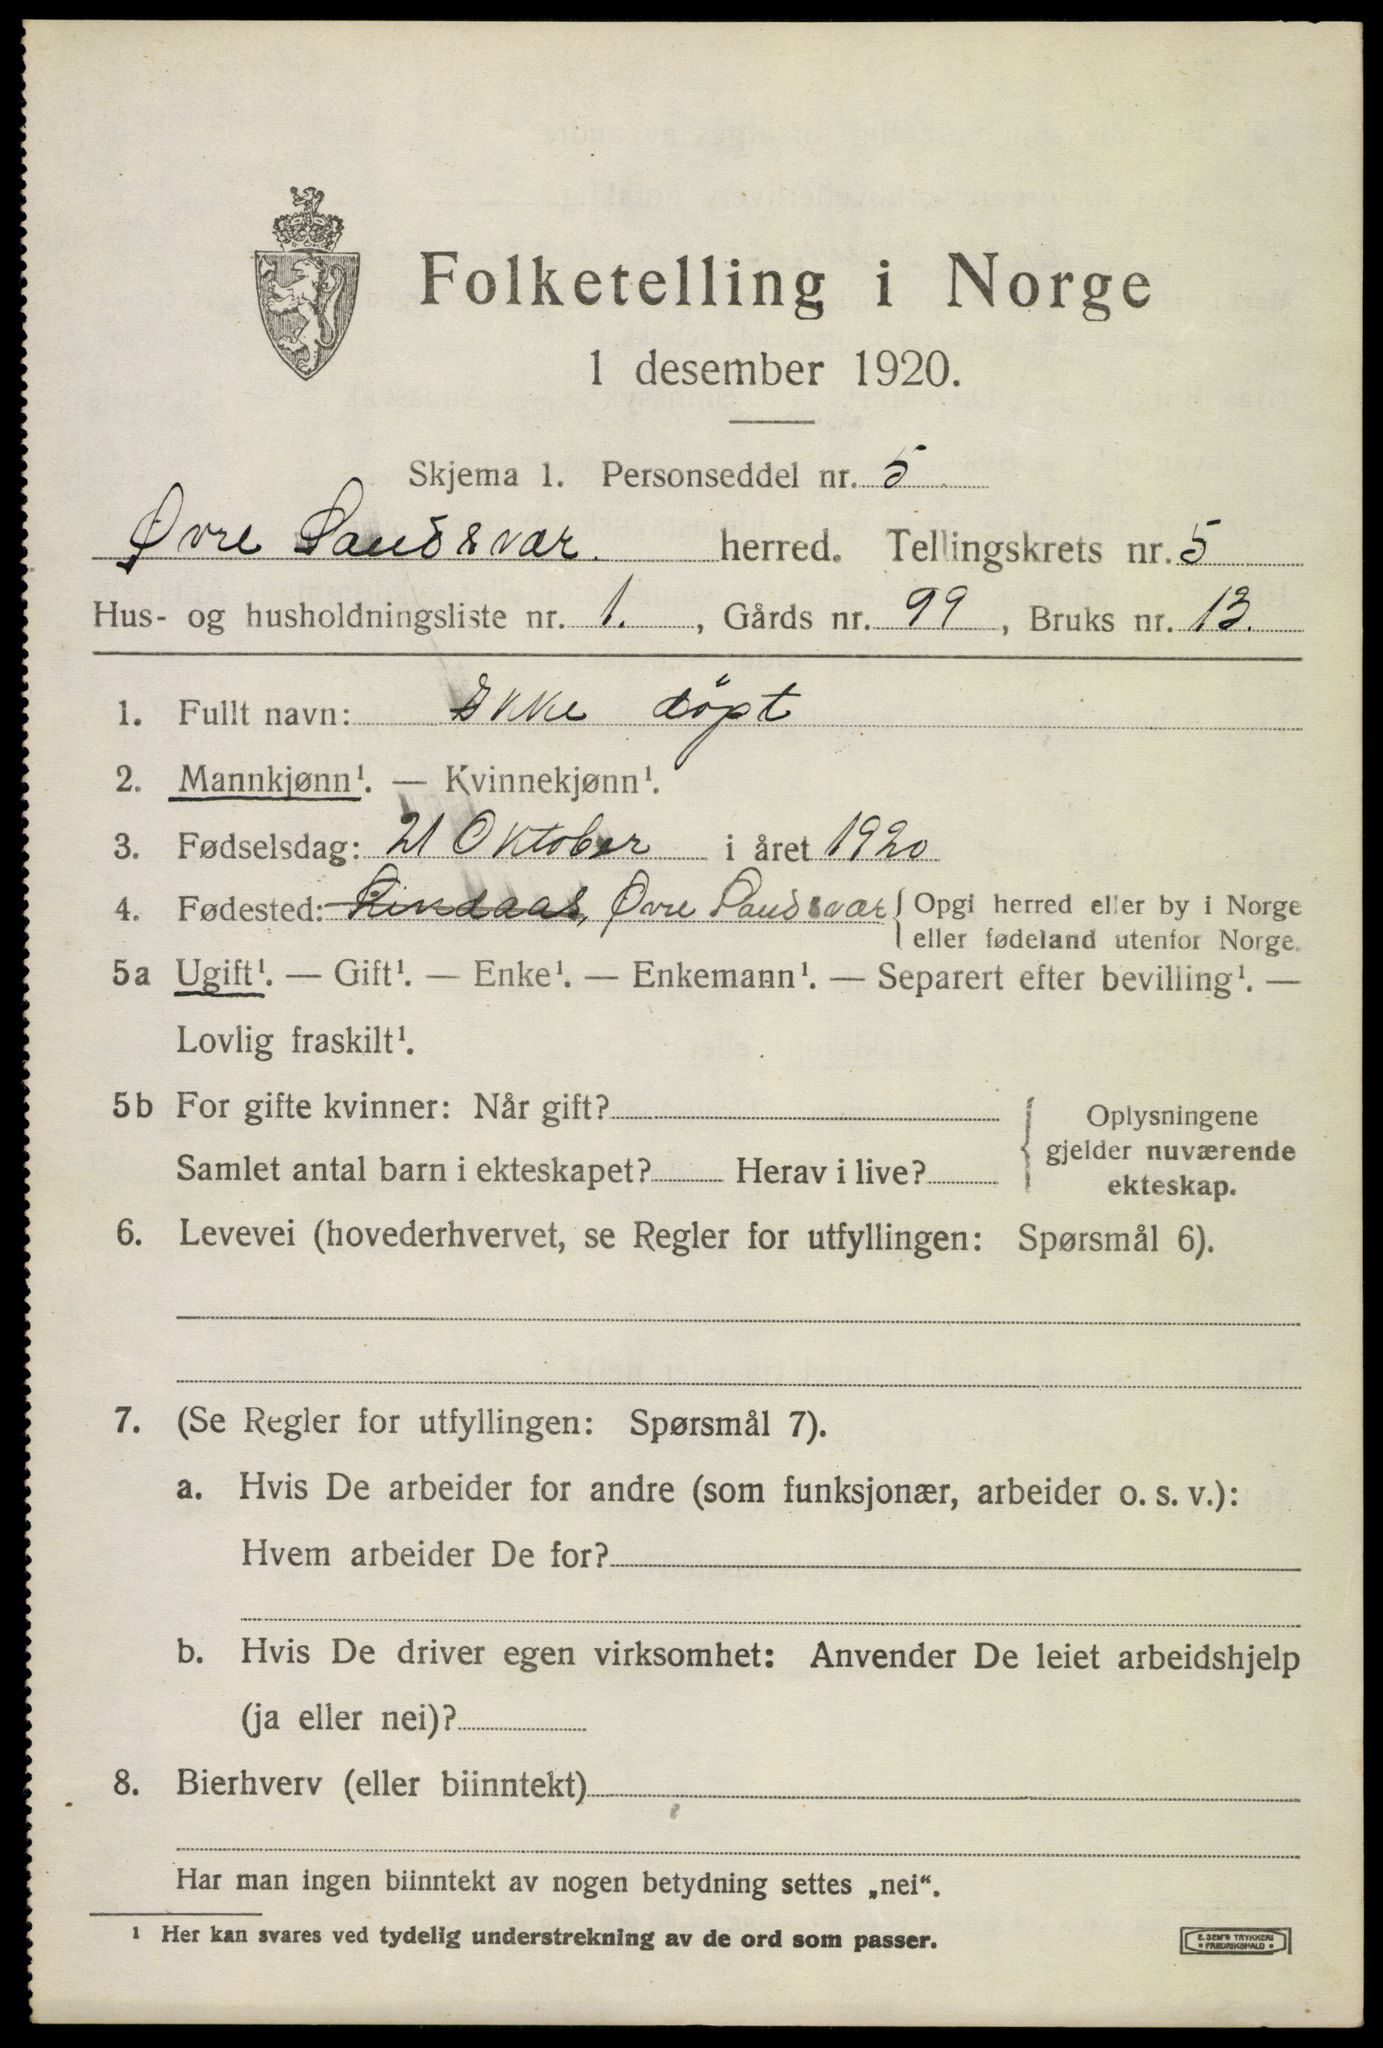 Folketelling i Norge
1 desember 1920.
Skjema 1. Personseddel nr. 5
Øvre Sandsvær. herred. Tellingskrets nr. 5
Hus- og husholdningsliste nr. 1. , Gårds nr. 99 , Bruks nr. 13.
1. Fullt navn: Ikke döpt
2. Mannkjønn¹. — Kvinnekjønn¹.
3. Fødselsdag: 21 Oktober i året 1920
4. Fødested: Øvre Sandsvær { Opgi herred eller by i Norge
eller fødeland utenfor Norge.
5a Ugift¹. — Gift¹. — Enke¹. — Enkemann¹. — Separert efter bevilling¹. —
Lovlig fraskilt¹.
5b For gifte kvinner: Når gift?
Samlet antal barn i ekteskapet? Herav i live?
{ Oplysningene
gjelder nuværende
ekteskap.
6. Levevei (hovederhvervet, se Regler for utfyllingen: Spørsmål 6).
7. (Se Regler for utfyllingen: Spørsmål 7).
a. Hvis De arbeider for andre (som funksjonær, arbeider o. s. v.):
Hvem arbeider De for?
b. Hvis De driver egen virksomhet: Anvender De leiet arbeidshjelp
(ja eller nei)?
8. Bierhverv (eller biinntekt)
Har man ingen biinntekt av nogen betydning settes „nei“.
¹ Her kan svares ved tydelig understrekning av de ord som passer.
E. SEM'S TRYKKERI
• FREDRIKSHALD •